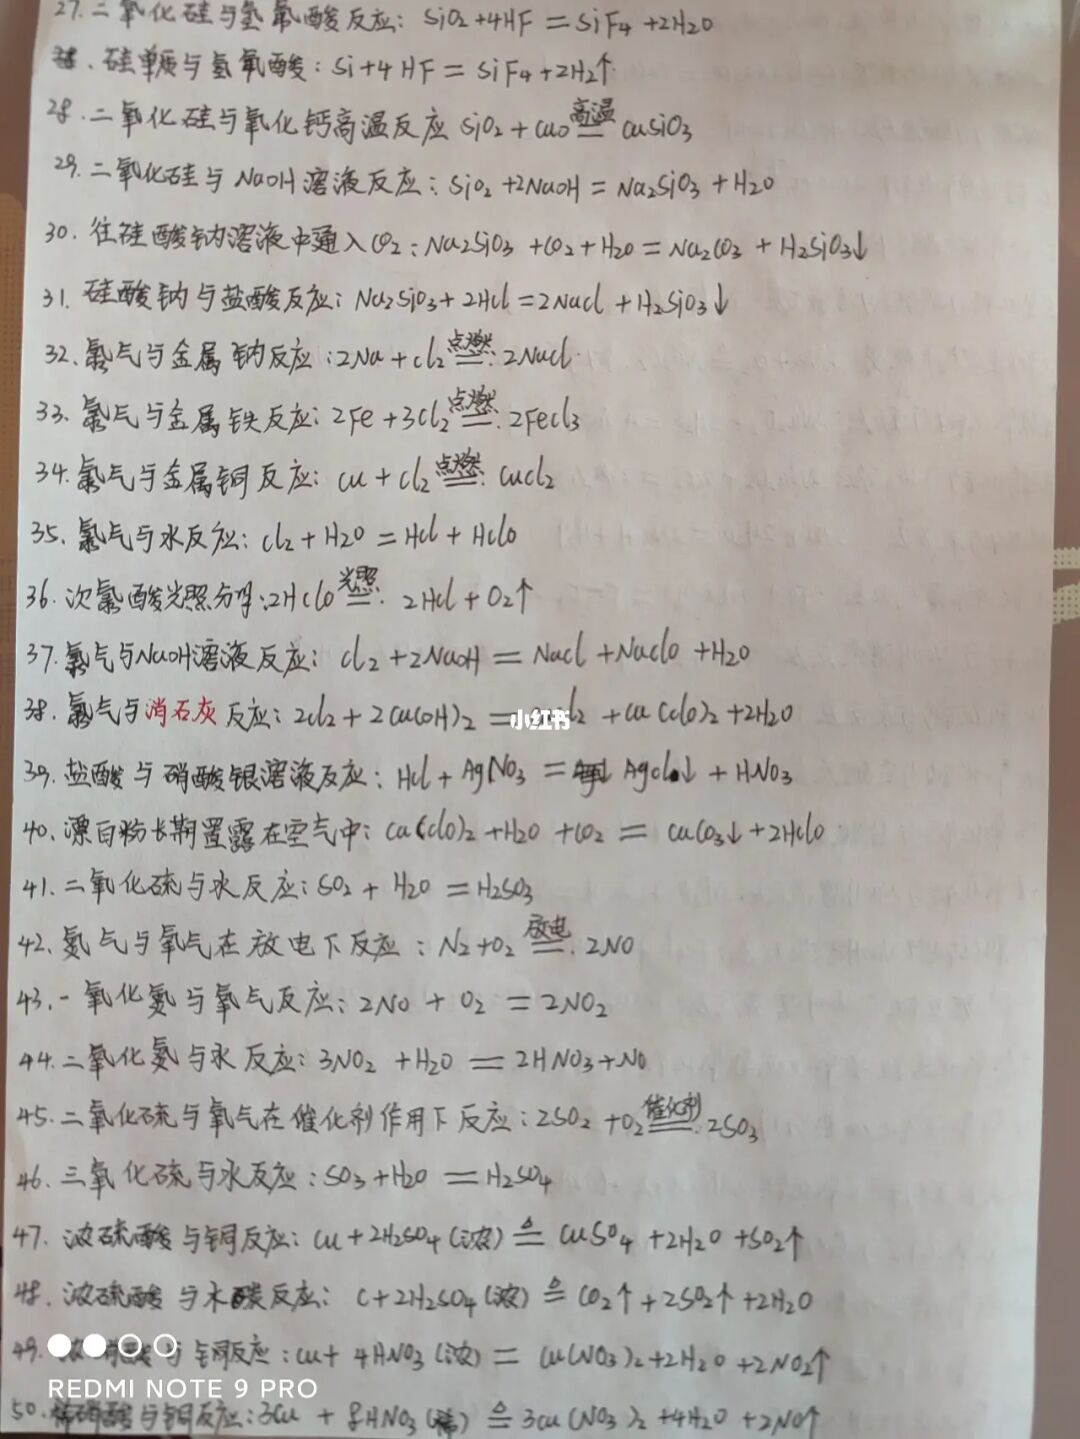 27.二氧化硅与氢氟酸反应: SiO₂+4HF=SiF₄+2H₂O
硅单质与氢氟酸: Si+4HF=SiF₄+2H₂↑
28.二氧化硅与氧化钙高温反应 SiO₂+CaO 高温 = CaSiO₃
29.二氧化硅与NaOH溶液反应: SiO₂+2NaOH=Na₂SiO₃+H₂O
30.往硅酸钠溶液中通入CO₂: Na₂SiO₃+CO₂+H₂O=Na₂CO₃+H₂SiO₃↓
31.硅酸钠与盐酸反应: Na₂SiO₃+2HCl=2NaCl+H₂SiO₃↓
32.氯气与金属钠反应: 2Na+Cl₂ 点燃 = 2NaCl
33.氯气与金属铁反应: 2Fe+3Cl₂ 点燃 = 2FeCl₃
34.氯气与金属铜反应: Cu+Cl₂ 点燃 = CuCl₂
35.氯气与水反应: Cl₂+H₂O=HCl+HClO
36.次氯酸光照分解: 2HClO 光照 = 2HCl+O₂↑
37.氯气与NaOH溶液反应: Cl₂+2NaOH=NaCl+NaClO+H₂O
38.氯气与消石灰反应: 2Cl₂+2Ca(OH)₂= l₂+Ca(ClO)₂+2H₂O
小红书
39.盐酸与硝酸银溶液反应: HCl+AgNO₃=AgCl↓+HNO₃
40.漂白粉长期置露在空气中: Ca(ClO)₂+H₂O+CO₂=CaCO₃↓+2HClO
41.二氧化硫与水反应: SO₂+H₂O=H₂SO₃
42.氮气与氧气在放电下反应: N₂+O₂ 放电 = 2NO
43.一氧化氮与氧气反应: 2NO+O₂=2NO₂
44.二氧化氮与水反应: 3NO₂+H₂O=2HNO₃+NO
45.二氧化硫与氧气在催化剂作用下反应: 2SO₂+O₂ 催化剂 = 2SO₃
46.三氧化硫与水反应: SO₃+H₂O=H₂SO₄
47.浓硫酸与铜反应: Cu+2H₂SO₄(浓) △ = CuSO₄+2H₂O+SO₂↑
48.浓硫酸与木碳反应: C+2H₂SO₄(浓) △ = CO₂↑+2SO₂↑+2H₂O
49.浓硝酸与铜反应: Cu+4HNO₃(浓)=Cu(NO₃)₂+2H₂O+2NO₂↑
REDMI NOTE 9 PRO
50.稀硝酸与铜反应: 3Cu+8HNO₃(稀) △ = 3Cu(NO₃)₂+4H₂O+2NO↑